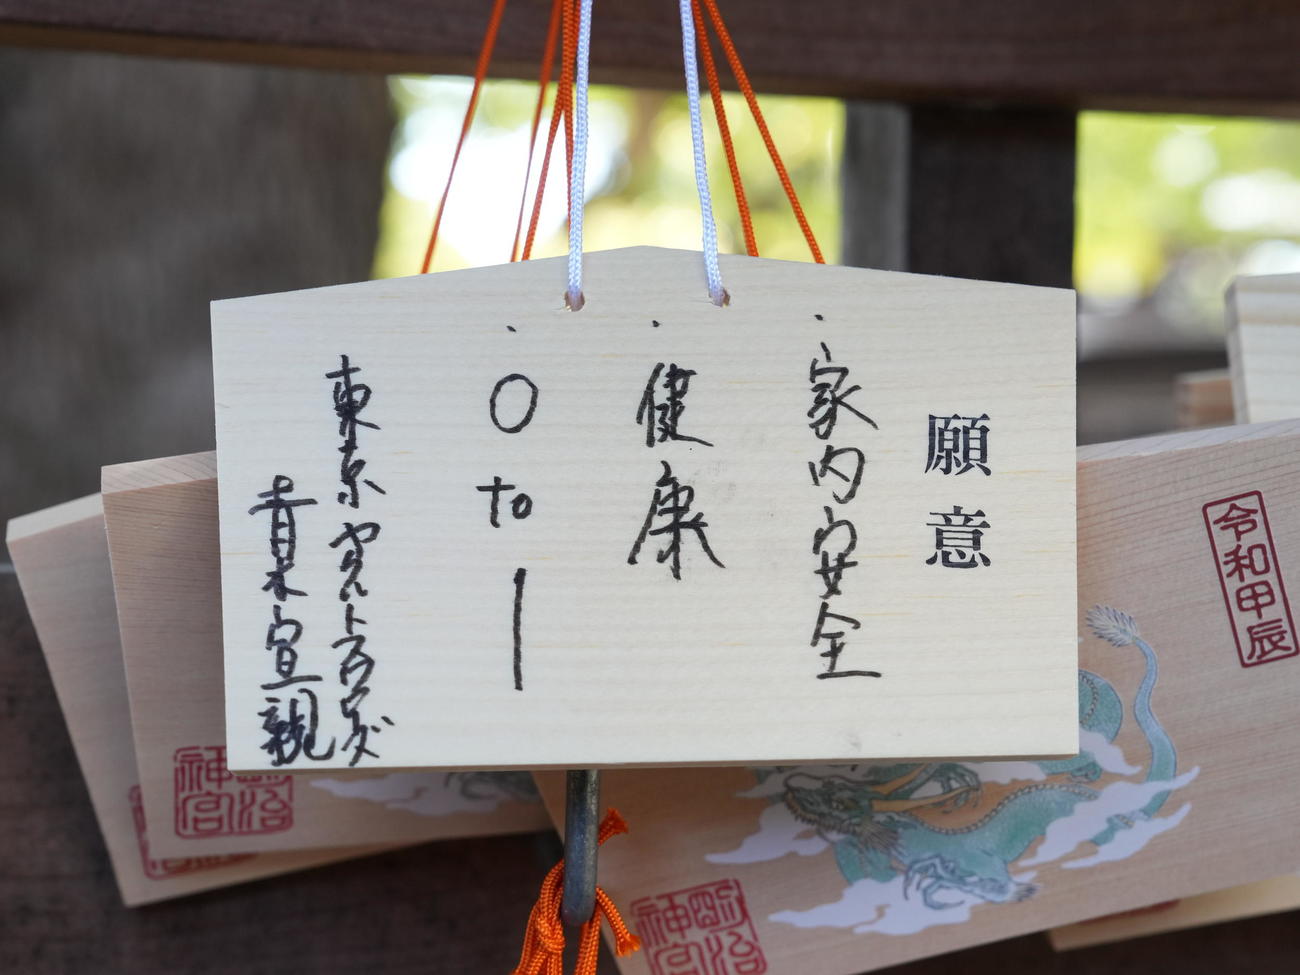 願意
・家内安全
・健康
・0 to 1
東京ヤクルトスワローズ
青木宣親
令和甲辰
明治神宮
明治神宮